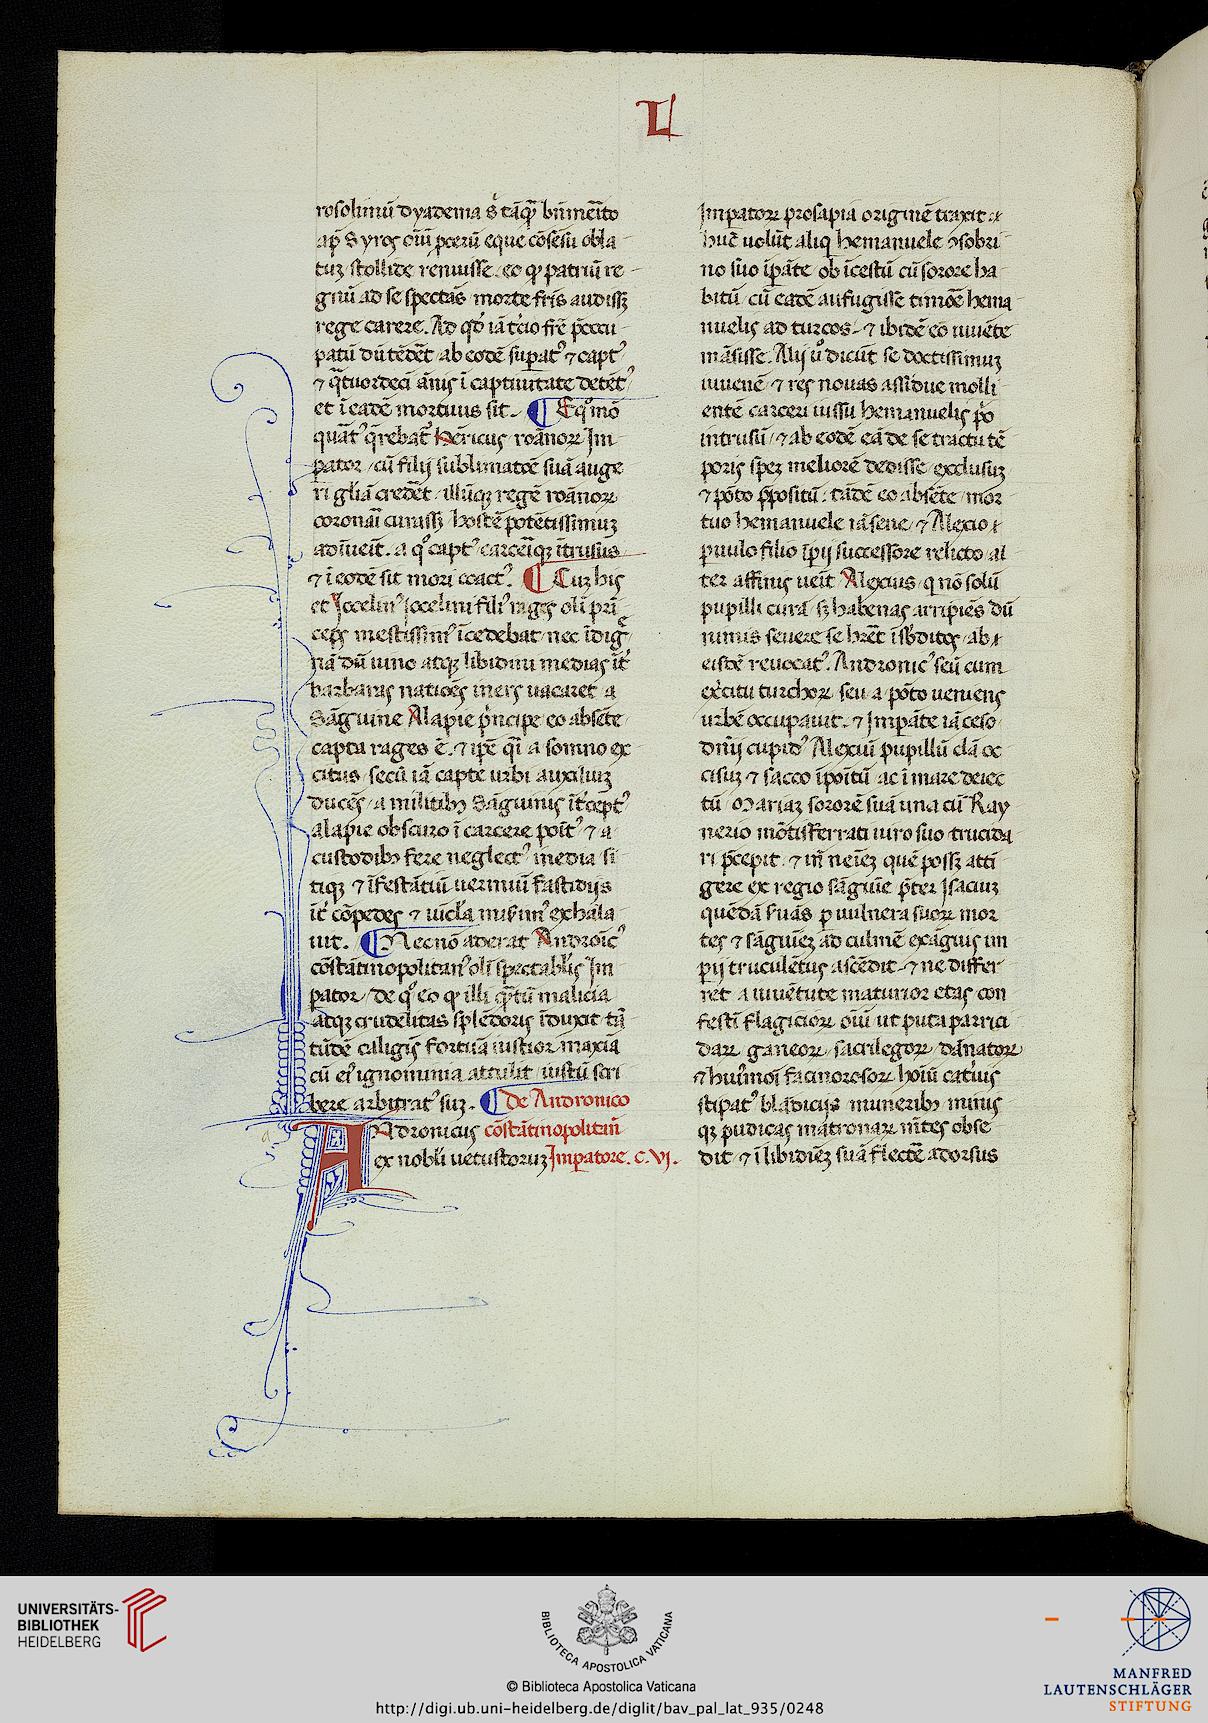 L
rosolimũ dyadema s᷑ tãq̃ bñmẽto
ap̃ Syros oiũ ꝓcerũ eque cõsẽsu obla
tuꝫ stollide renuisse. eo ꝙ patriũ re
gnũ ad se spectãs morte fr̃is audissꝫ
rege carere. Ad qď iã t̃cio frẽ p̃occu
patũ dũ tẽdẽt ab eodẽ suꝑatꝰ ⁊ captꝰ
⁊ q̃tuordecĩ ãnis ĩ captiuitate detẽtꝰ
et ĩ eadẽ mortuus sit. ¶ Eqͦ mõ
quãtꝰ q̃rebat᷑ Hẽricus roãnoꝝ Im
ꝑator cũ filij sublimatõe suã auge
ri gl̃iã credẽt illũqꝫ regẽ roãnoꝝ
coronãĩ curassꝫ hostẽ potẽtissimuꝫ
adĩueit. a qͦ captꝰ carcẽiqꝫ ĩtrusus
⁊ ĩ eodẽ sit mori coactꝰ. ¶ Cuꝫ his
et Jocelinꝰ Jocelini filiꝰ rages oli pr̃i
ceps mestissimꝰ ĩcedebat nec ĩdig
nã dũ uino atqꝫ libidini medias ĩt᷑
barbaras natiões iners uacaret a
Sãguine Alapie p̃ncipe eo absẽte
capta rages ẽ. ⁊ ip̃e q̃i a somno ex
citus secũ iã capte urbi auxiliuꝫ
ducẽs a militibꝰ Sãguinis ĩt᷑ceptꝰ
alapie obscuro ĩ carcere poĩtꝰ ⁊ a
custodibꝰ fere neglectꝰ inedia si
tiqꝫ ⁊ ĩfestãtiũ uermiũ fastidijs
ĩt᷑ cõpedes ⁊ uic̃la exhala
uit. ¶ Necnõ aderat Andrõicꝰ
cõstãtinopolitanꝰ oli spectabl̃is Im
ꝑator de qͦ eo ꝙ illi q̃tũ malicia
atqꝫ crudelitas splẽdoris ĩduxit tã
tũdẽ caligis̃ fortũa iustior maxĩa
cũ eiꝰ ignominia attulit iustũ scri
bere arbitratꝰ suꝫ. ¶ De Andronico
ANdronicus cõstãtinopolitãĩ
ex nobli uetustoruꝫ Imꝑatore. c. vj.
Imꝑatoꝝ prosapia originẽ traxit ⁊
hũc uolũt aliq̃ hemanuele ꝯsobri
no suo iꝑãte ob ĩcestũ cũ sorore ha
bitũ cũ eadẽ aufugisse timõe hema
nuelis ad turcos ⁊ ibidẽ eo uiuẽte
mãsisse. Alij uͦ dicũt se doctissimuꝫ
iuuenẽ ⁊ res nouas assidue molli
entẽ carceri iussu hemanuelis p̃o
intrusũ ⁊ ab eodẽ eã de se tractu tẽ
poris speꝫ meliorẽ dedisse exclusuꝫ
⁊ põto p̃positũ tãdẽ eo absẽte mor
tuo hemanuele iã sene ⁊ Alexio
ꝑuulo filio iꝑij successore relicto al
ter affinis ueĩt Alexius q nõ solũ
pupilli curã sꝫ habenas arripiẽs dũ
nimis seuere se hr̃et ĩ sb̃ditos ab
eisdẽ reuocatꝰ. Andronicꝰ seũ cum
exercitu turchoꝝ seu a põto ueniens
urbẽ occupauit. ⁊ Imꝑãte iã ceso
dñij cupidꝰ Alexiũ pupillũ clã oc
cisuꝫ ⁊ sacco ĩpoĩtũ ac ĩ mare deiec
tũ Mariaꝫ sororẽ suã una cũ Ray
nerio mõtisferrati uiro suo trucida
ri p̃cepit ⁊ neieꝫ quẽ possꝫ atti
gere ex regio sãguĩe p̃ter Isaciuꝫ
quẽdã suãs ꝑ uulnera suoꝝ mor
tes ⁊ sãguieꝫ ad culmẽ exãguis im
ꝑij truculẽtus ascẽdit. ⁊ ne differ
ret a iuuẽtute maturior etas con
festĩ flagicioꝝ oiũ ut puta parrici
daꝝ ganeoꝝ sacrilegoꝝ dãnatoꝝ
⁊ huĩmoi facinorosoꝝ hoiũ cat᷑uis
stipatꝰ blãdicijs muneribꝰ minis
qꝫ pudicas matronaꝝ mẽtes obse
dit ⁊ ĩ libidieꝫ suã flectẽ adorsus
UNIVERSITÄTS-
BIBLIOTHEK
HEIDELBERG
BIBLIOTECA APOSTOLICA VATICANA
© Biblioteca Apostolica Vaticana
http://digi.ub.uni-heidelberg.de/diglit/bav_pal_lat_935/0248
MANFRED
LAUTENSCHLÄGER
STIFTUNG